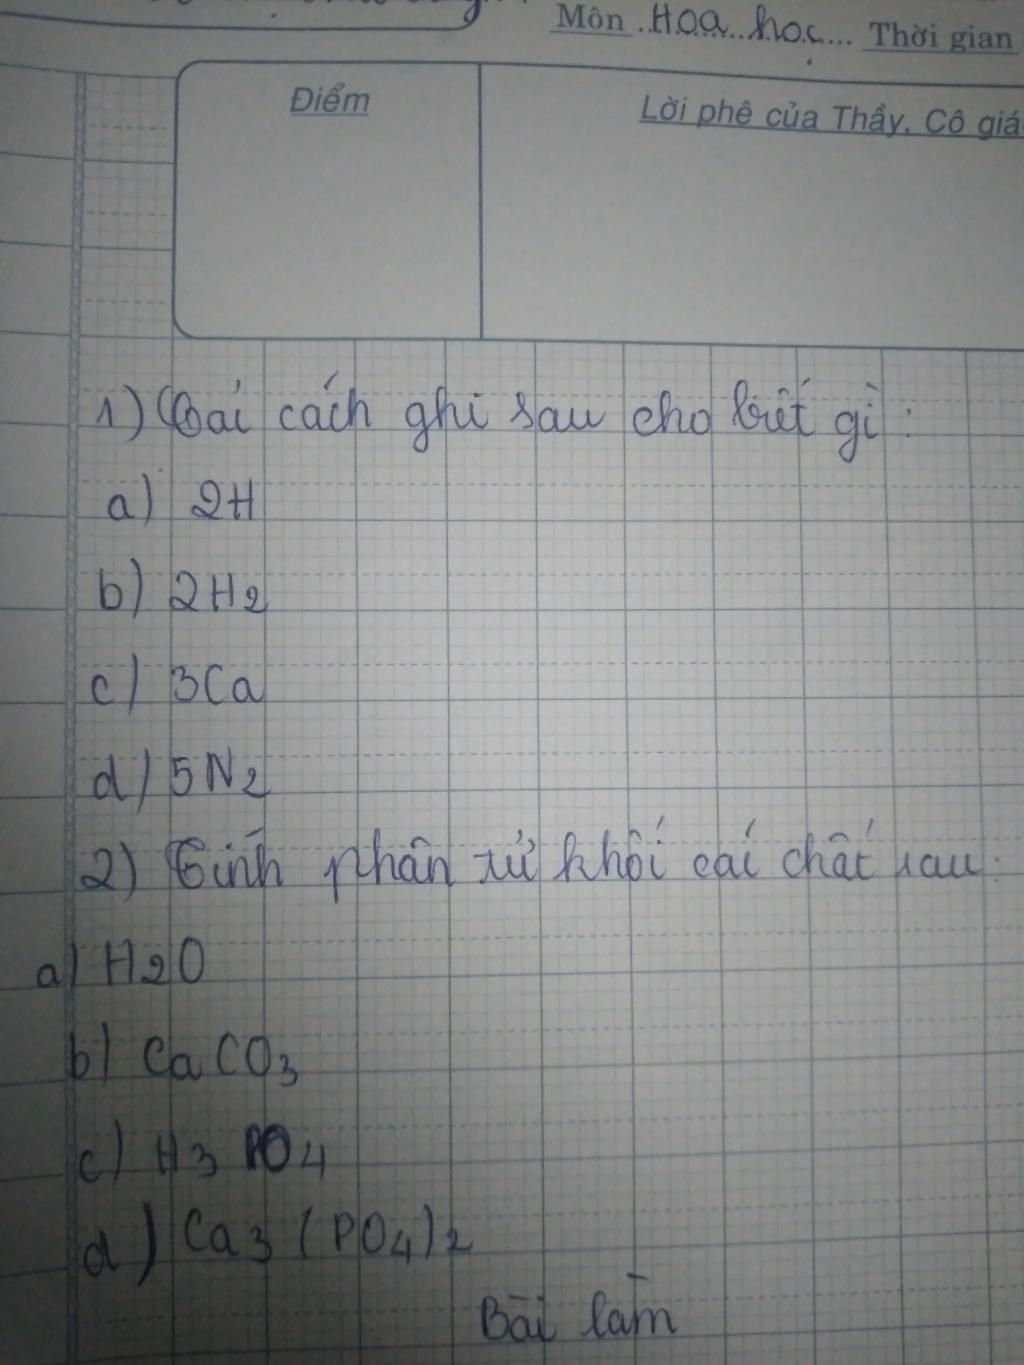 Môn Hoá học Thời gian
Điểm
Lời phê của Thầy, Cô giá
1) Các cách ghi sau cho biết gì:
a) 2H
b) 2H2
c) 3Ca
d) 5N2
2) Tính phân tử khối các chất sau:
a) H2O
b) CaCO3
c) H3PO4
d) Ca3(PO4)2
Bài làm